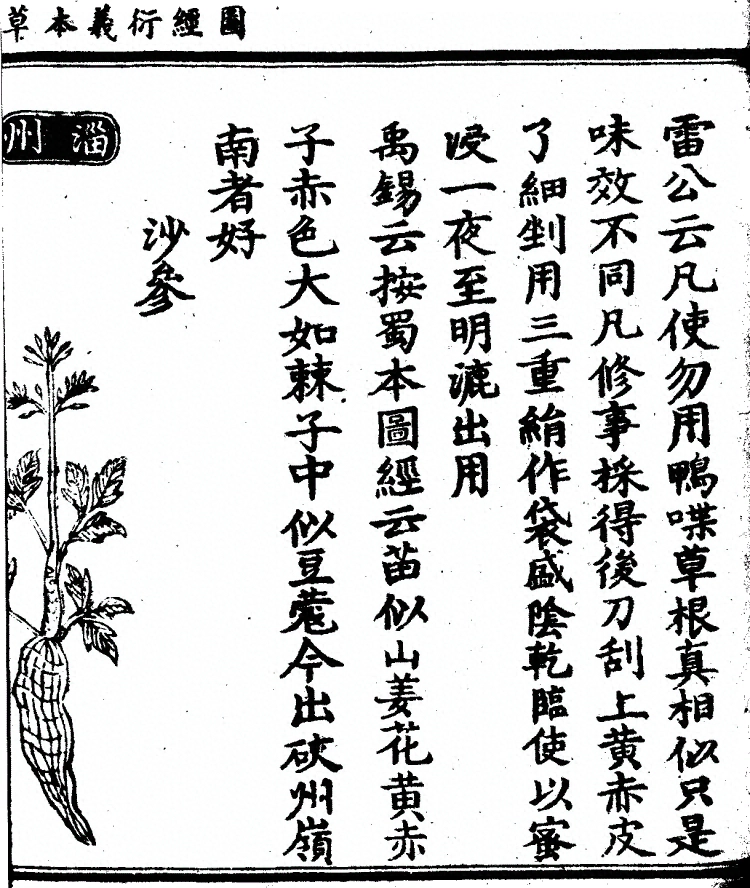 圖經衍義本草
雷公云凡使勿用鴨喋草根真相似只是
味效不同凡修事採得後刀刮上黄赤皮
了細剉用三重絹作袋盛陰乾臨使以蜜
浸一夜至明漉出用
禹錫云按蜀本圖經云苗似山姜花黄赤
子赤色大如棘子中似豆蔻今出硤州嶺
南者好
沙參
淄州